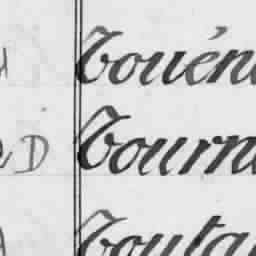 Touén
D Tourn
Touta